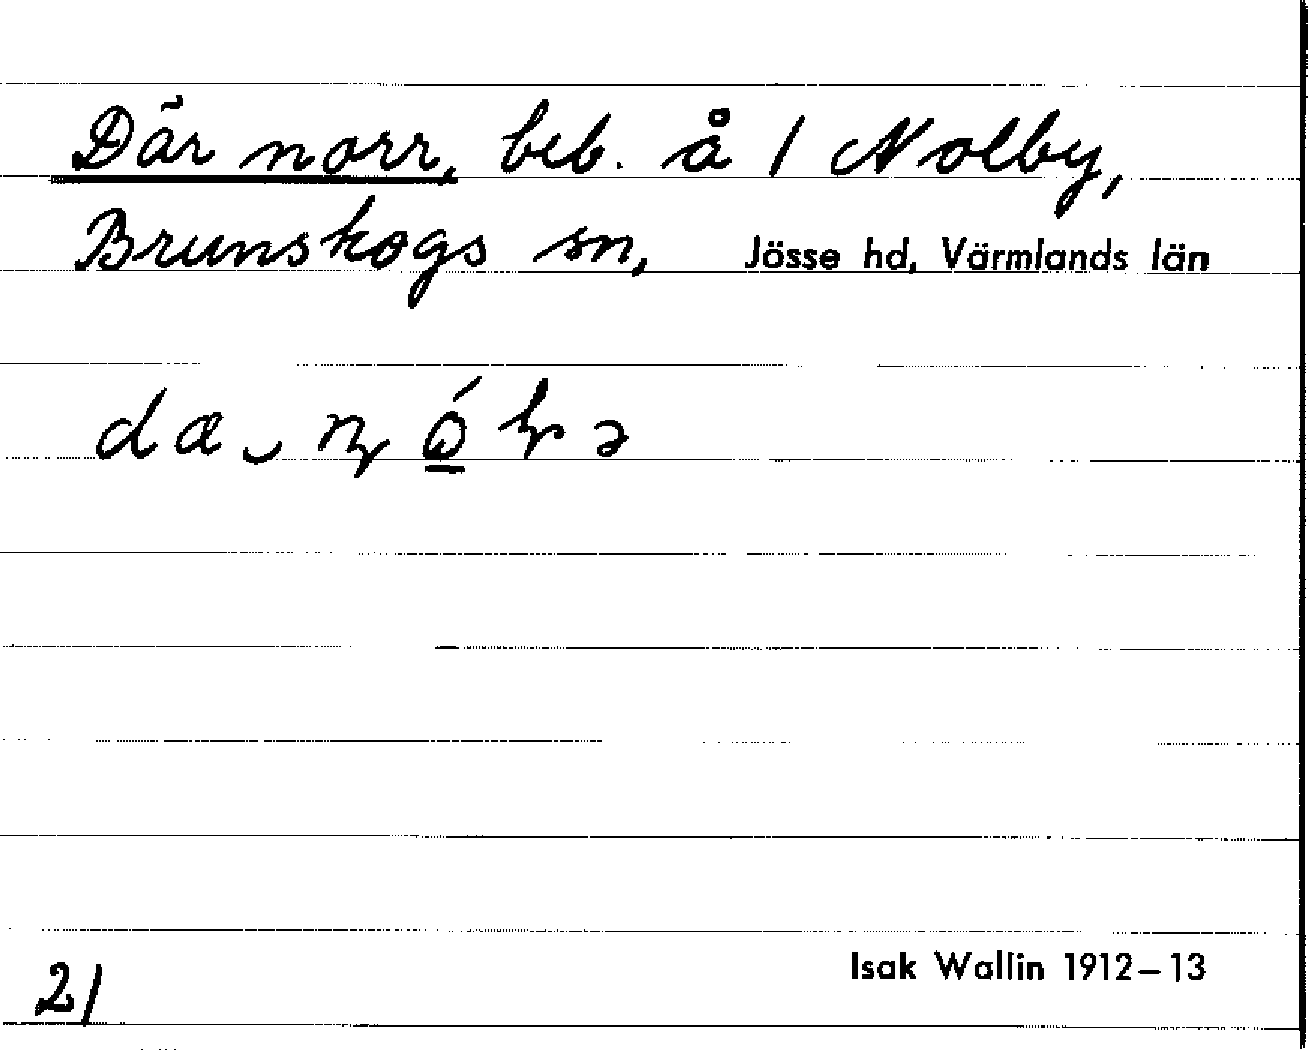 Där norr, beb. å / Nolby,
Brunskogs sn, Jösse hd, Värmlands län
Isak Wallin 1912–13
2/